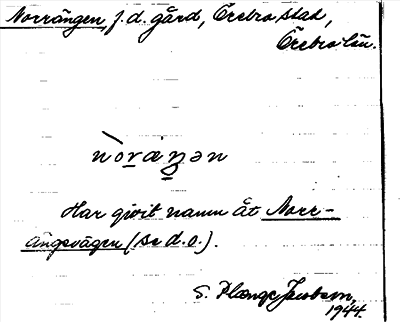 Norrängen, f.d. gård, Örebro stad,
Örebro län.
nòræŋən
Har givit namn åt Norr-
ängsvägen (se d.o.).
S. Plænge Jacobson,
1944.